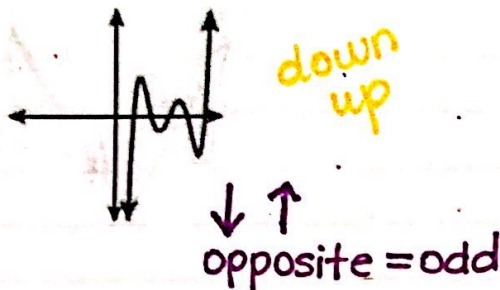 down
up
opposite = odd